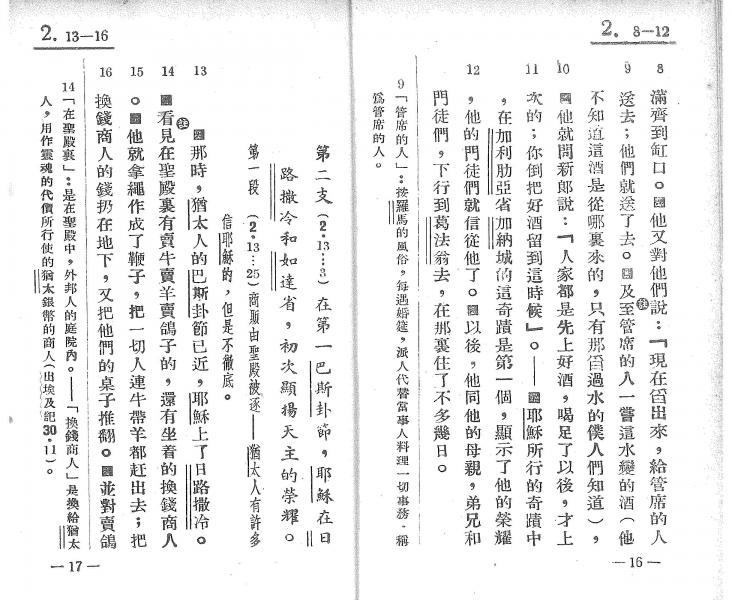 2. 8—12
8 滿齊到缸口。▣他又對他們說:「現在舀出來,給管席的人
9 送去;他們就送了去。▣及至㊟管席的人一嘗這水變的酒(他
不知道這酒是從哪裏來的,只有那舀過水的僕人們知道),
10 ▣他就問新郎說:「人家都是先上好酒,喝足了以後,才上
11 次的;你倒把好酒留到這時候」。——▣耶穌所行的奇蹟中
,在加利肋亞省加納城的這奇蹟是第一個,顯示了他的榮耀
12 ,他的門徒們就信從他了。▣以後,他同他的母親,弟兄和
門徒們,下行到葛法翁去,在那裏住了不多幾日。
9「管席的人」:按羅馬的風俗,每遇婚筵,派人代替當事人料理一切事務,稱
爲管席的人。
—16—
2. 13—16
第二支(2.13…3)在第一巴斯卦節,耶穌在日
路撒冷和如達省,初次顯揚天主的榮耀。
第一段 (2.13…25)商販由聖殿被逐——猶太人有許多
信耶穌的,但是不徹底。
13 ▣那時,猶太人的巴斯卦節已近,耶穌上了日路撒冷。
14 ▣看見㊟在聖殿裏有賣牛賣羊賣鴿子的,還有坐着的換錢商人
15 。▣他就拿繩作成了鞭子,把一切人連牛帶羊都赶出去;把
16 換錢商人的錢扔在地下,又把他們的桌子推翻。▣並對賣鴿
14「在聖殿裏」:是在聖殿中,外邦人的庭院內。——「換錢商人」是換給猶太
人,用作靈魂的代價所行使的猶太銀幣的商人(出埃及記30.11)。
—17—